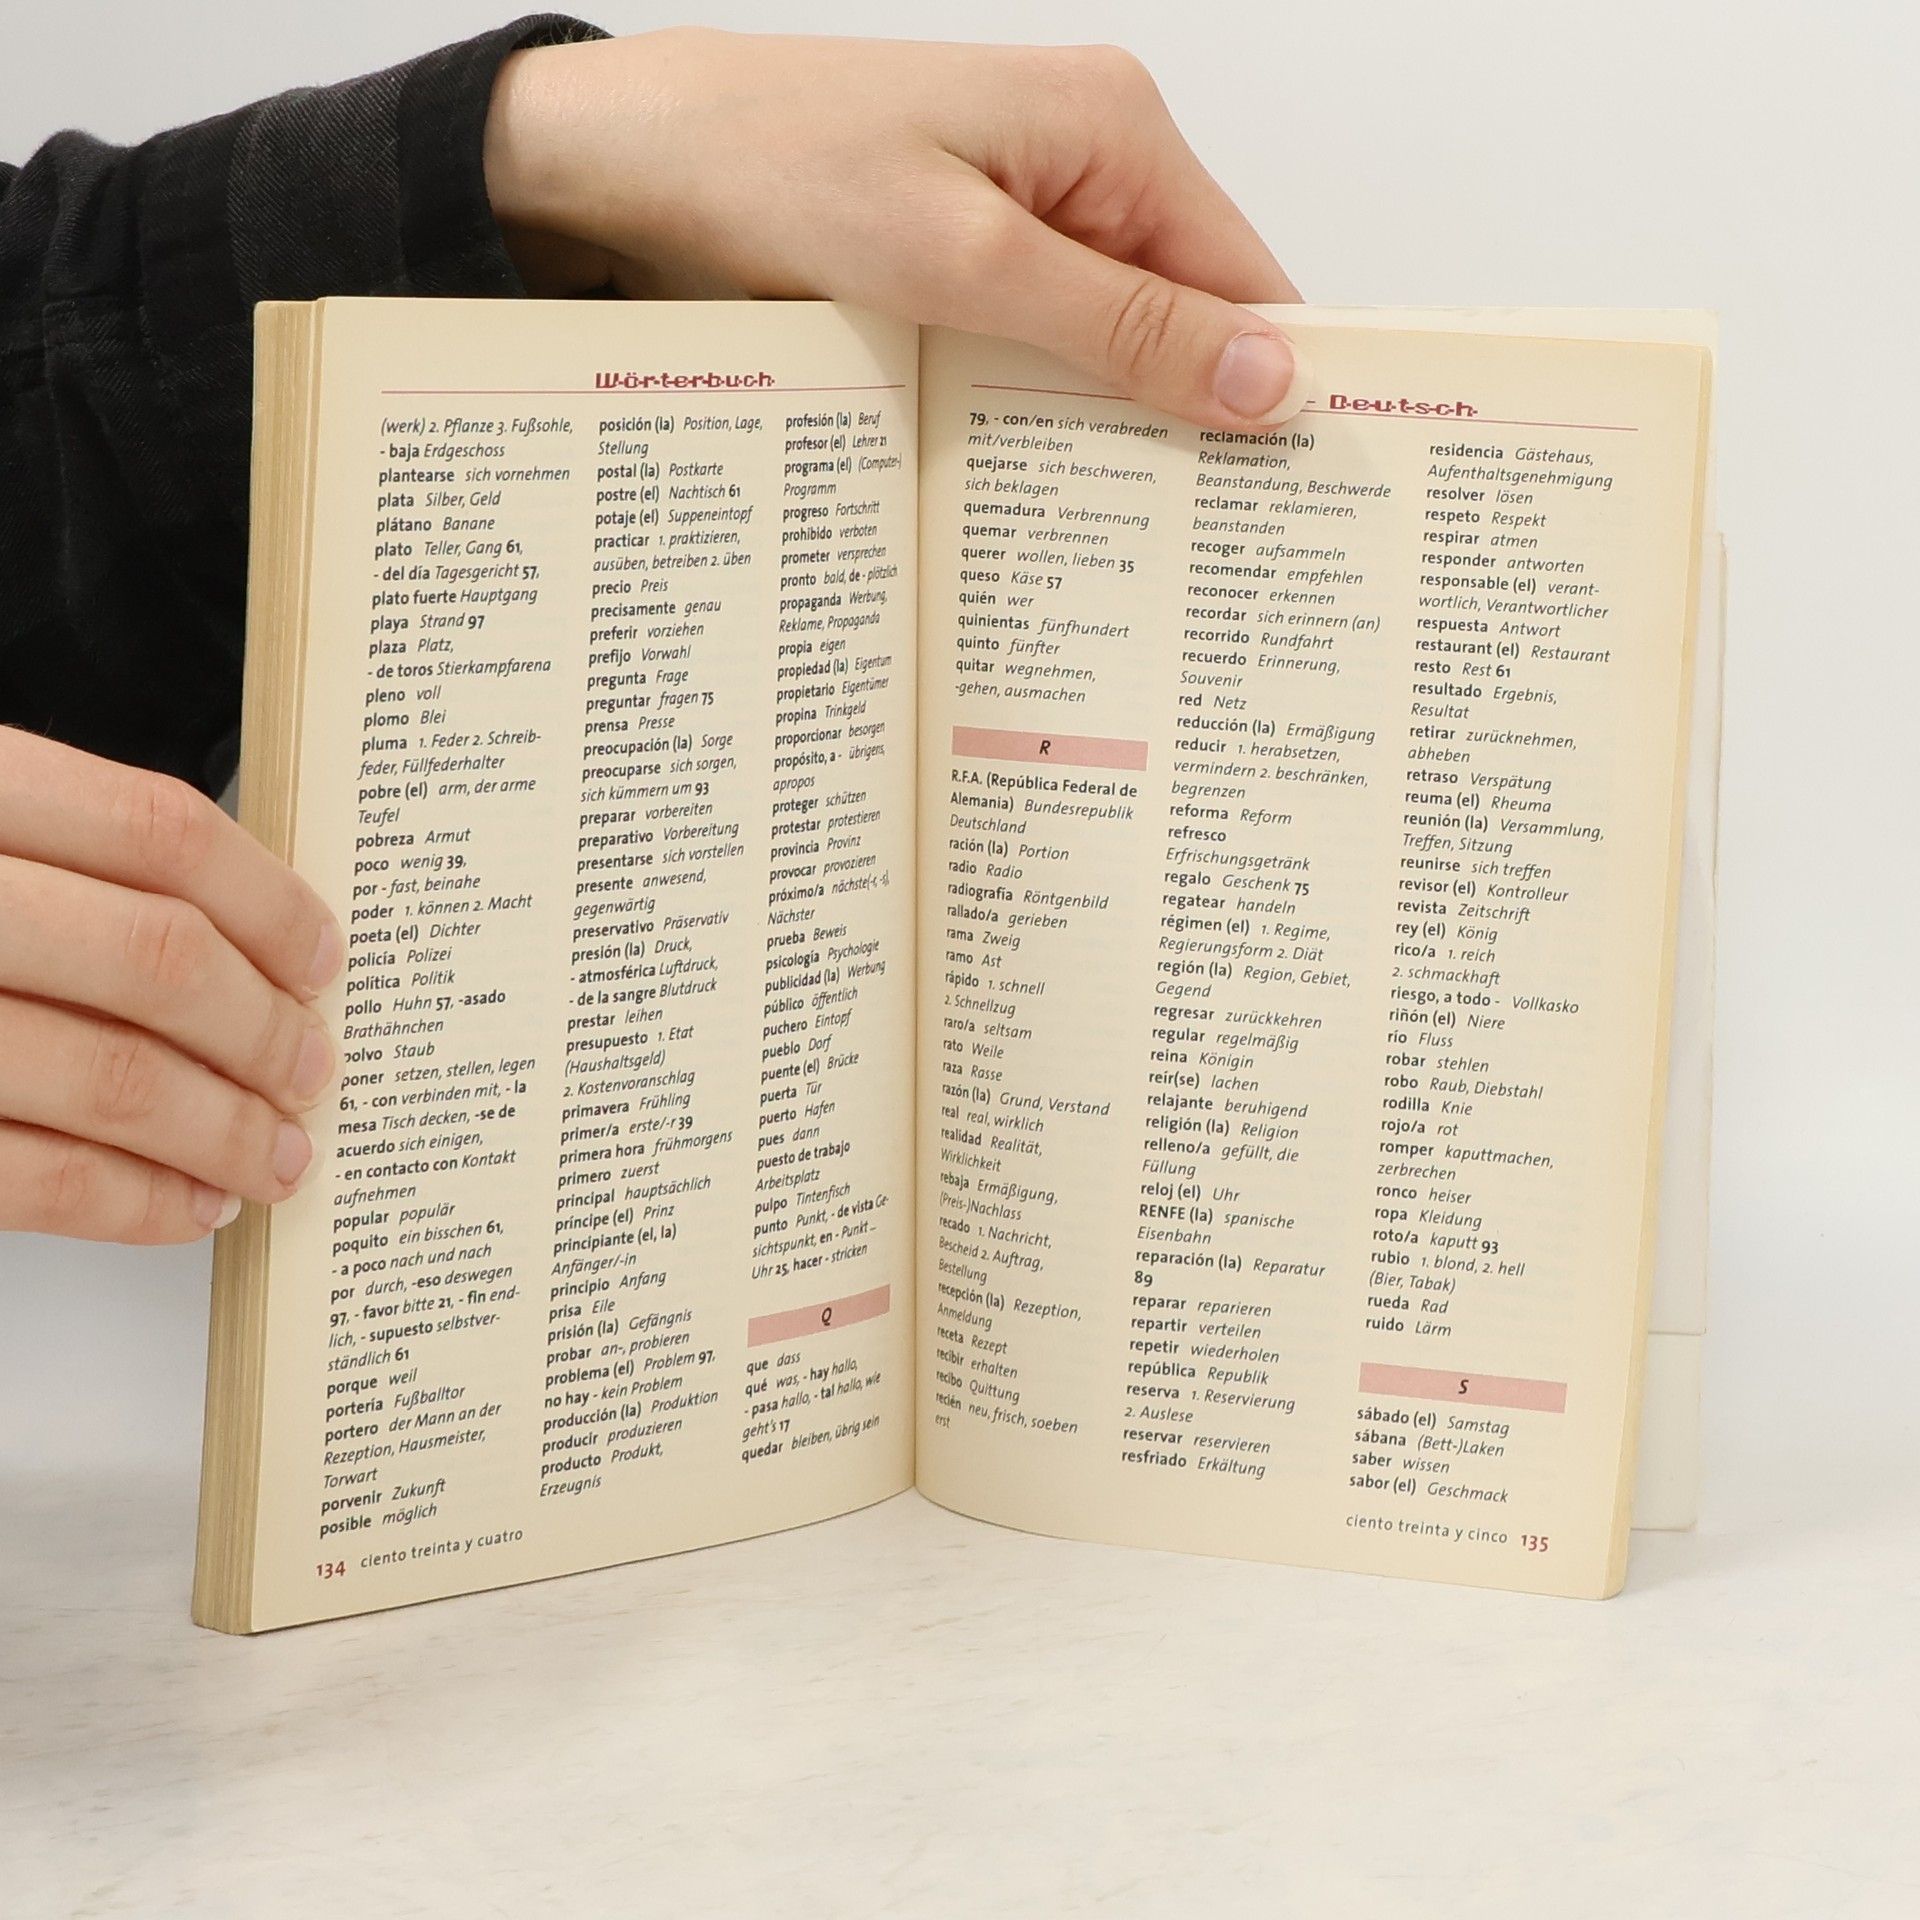 Wörterbuch
(werk) 2. Pflanze 3. Fußsohle,
- baja Erdgeschoss
plantearse sich vornehmen
plata Silber, Geld
plátano Banane
plato Teller, Gang 61,
- del día Tagesgericht 57,
plato fuerte Hauptgang
playa Strand 97
plaza Platz,
- de toros Stierkampfarena
pleno voll
plomo Blei
pluma 1. Feder 2. Schreib-
feder, Füllfederhalter
pobre (el) arm, der arme
Teufel
pobreza Armut
poco wenig 39,
por - fast, beinahe
poder 1. können 2. Macht
poeta (el) Dichter
policía Polizei
política Politik
pollo Huhn 57, -asado
Brathähnchen
polvo Staub
poner setzen, stellen, legen
61, - con verbinden mit, - la
mesa Tisch decken, -se de
acuerdo sich einigen,
- en contacto con Kontakt
aufnehmen
popular populär
poquito ein bisschen 61,
- a poco nach und nach
por durch, -eso deswegen
97, - favor bitte 21, - fin end-
lich, - supuesto selbstver-
ständlich 61
porque weil
portería Fußballtor
portero der Mann an der
Rezeption, Hausmeister,
Torwart
porvenir Zukunft
posible möglich
posición (la) Position, Lage,
Stellung
postal (la) Postkarte
postre (el) Nachtisch 61
potaje (el) Suppeneintopf
practicar 1. praktizieren,
ausüben, betreiben 2. üben
precio Preis
precisamente genau
preferir vorziehen
prefijo Vorwahl
pregunta Frage
preguntar fragen 75
prensa Presse
preocupación (la) Sorge
preocuparse sich sorgen,
sich kümmern um 93
preparar vorbereiten
preparativo Vorbereitung
presentarse sich vorstellen
presente anwesend,
gegenwärtig
preservativo Präservativ
presión (la) Druck,
- atmosférica Luftdruck,
- de la sangre Blutdruck
prestar leihen
presupuesto 1. Etat
(Haushaltsgeld)
2. Kostenvoranschlag
primavera Frühling
primer/a erste/-r 39
primera hora frühmorgens
primero zuerst
principal hauptsächlich
príncipe (el) Prinz
principiante (el, la)
Anfänger/-in
principio Anfang
prisa Eile
prisión (la) Gefängnis
probar an-, probieren
problema (el) Problem 97,
no hay - kein Problem
producción (la) Produktion
producir produzieren
producto Produkt,
Erzeugnis
profesión (la) Beruf
profesor (el) Lehrer 21
programa (el) (Computer-)
Programm
progreso Fortschritt
prohibido verboten
prometer versprechen
pronto bald, de - plötzlich
propaganda Werbung,
Reklame, Propaganda
propia eigen
propiedad (la) Eigentum
propietario Eigentümer
propina Trinkgeld
proporcionar besorgen
propósito, a - übrigens,
apropos
proteger schützen
protestar protestieren
provincia Provinz
provocar provozieren
próximo/a nächste(-r, -s),
Nächster
prueba Beweis
psicología Psychologie
publicidad (la) Werbung
público öffentlich
puchero Eintopf
pueblo Dorf
puente (el) Brücke
puerta Tür
puerto Hafen
pues dann
puesto de trabajo
Arbeitsplatz
pulpo Tintenfisch
punto Punkt, - de vista Ge-
sichtspunkt, en - Punkt ...
Uhr 25, hacer - stricken
Q
que dass
qué was, - hay hallo,
- pasa hallo, - tal hallo, wie
geht's 17
quedar bleiben, übrig sein
134 ciento treinta y cuatro
- Deutsch
79, - con/en sich verabreden
mit/verbleiben
quejarse sich beschweren,
sich beklagen
quemadura Verbrennung
quemar verbrennen
querer wollen, lieben 35
queso Käse 57
quién wer
quinientas fünfhundert
quinto fünfter
quitar wegnehmen,
-gehen, ausmachen
R
R.F.A. (República Federal de
Alemania) Bundesrepublik
Deutschland
ración (la) Portion
radio Radio
radiografía Röntgenbild
rallado/a gerieben
rama Zweig
ramo Ast
rápido 1. schnell
2. Schnellzug
raro/a seltsam
rato Weile
raza Rasse
razón (la) Grund, Verstand
real real, wirklich
realidad Realität,
Wirklichkeit
rebaja Ermäßigung,
(Preis-)Nachlass
recado 1. Nachricht,
Bescheid 2. Auftrag,
Bestellung
recepción (la) Rezeption,
Anmeldung
receta Rezept
recibir erhalten
recibo Quittung
recién neu, frisch, soeben
erst
reclamación (la)
Reklamation,
Beanstandung, Beschwerde
reclamar reklamieren,
beanstanden
recoger aufsammeln
recomendar empfehlen
reconocer erkennen
recordar sich erinnern (an)
recorrido Rundfahrt
recuerdo Erinnerung,
Souvenir
red Netz
reducción (la) Ermäßigung
reducir 1. herabsetzen,
vermindern 2. beschränken,
begrenzen
reforma Reform
refresco
Erfrischungsgetränk
regalo Geschenk 75
regatear handeln
régimen (el) 1. Regime,
Regierungsform 2. Diät
región (la) Region, Gebiet,
Gegend
regresar zurückkehren
regular regelmäßig
reina Königin
reír(se) lachen
relajante beruhigend
religión (la) Religion
relleno/a gefüllt, die
Füllung
reloj (el) Uhr
RENFE (la) spanische
Eisenbahn
reparación (la) Reparatur
89
reparar reparieren
repartir verteilen
repetir wiederholen
república Republik
reserva 1. Reservierung
2. Auslese
reservar reservieren
resfriado Erkältung
residencia Gästehaus,
Aufenthaltsgenehmigung
resolver lösen
respeto Respekt
respirar atmen
responder antworten
responsable (el) verant-
wortlich, Verantwortlicher
respuesta Antwort
restaurant (el) Restaurant
resto Rest 61
resultado Ergebnis,
Resultat
retirar zurücknehmen,
abheben
retraso Verspätung
reuma (el) Rheuma
reunión (la) Versammlung,
Treffen, Sitzung
reunirse sich treffen
revisor (el) Kontrolleur
revista Zeitschrift
rey (el) König
rico/a 1. reich
2. schmackhaft
riesgo, a todo - Vollkasko
riñón (el) Niere
río Fluss
robar stehlen
robo Raub, Diebstahl
rodilla Knie
rojo/a rot
romper kaputtmachen,
zerbrechen
ronco heiser
ropa Kleidung
roto/a kaputt 93
rubio 1. blond, 2. hell
(Bier, Tabak)
rueda Rad
ruido Lärm
S
sábado (el) Samstag
sábana (Bett-)Laken
saber wissen
sabor (el) Geschmack
ciento treinta y cinco 135